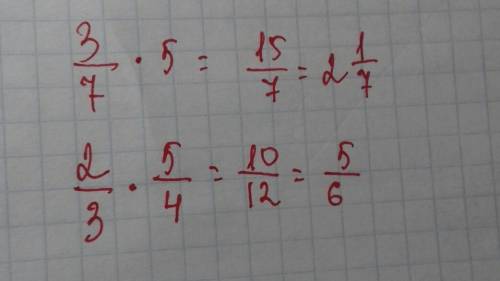 3/7 · 5 = 15/7 = 2 1/7
2/3 · 5/4 = 10/12 = 5/6